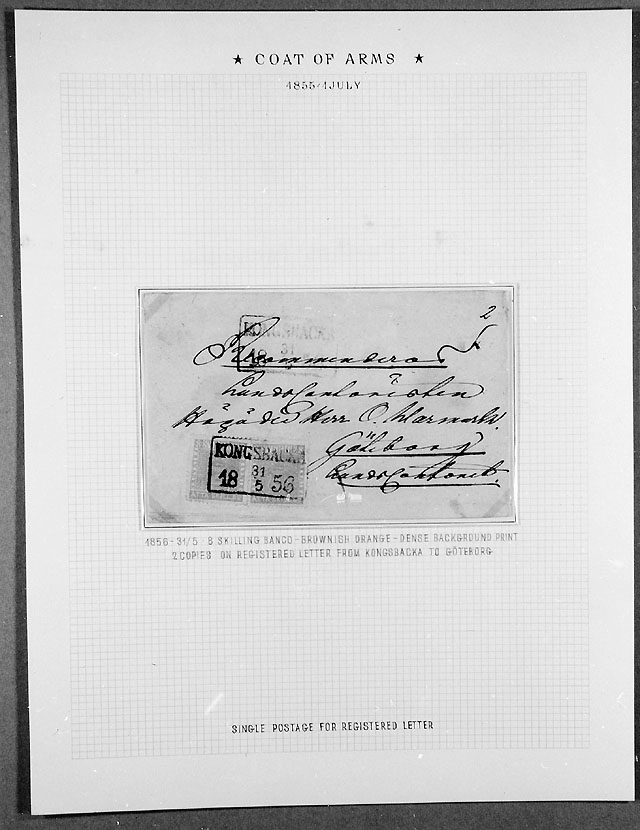 ★ COAT OF ARMS ★
1855-1JULY
2
KONGSBACKA
18 31
Recommenderas
LandsContoristen
Högädle Herr O. Warmark.
Göteborg
LandsContoret.
KONGSBACKA
18 31/5 56
1856-31/5 8 SKILLING BANCO-BROWNISH ORANGE-DENSE BACKGROUND PRINT
2 COPIES ON REGISTERED LETTER FROM KONGSBACKA TO GÖTEBORG
SINGLE POSTAGE FOR REGISTERED LETTER